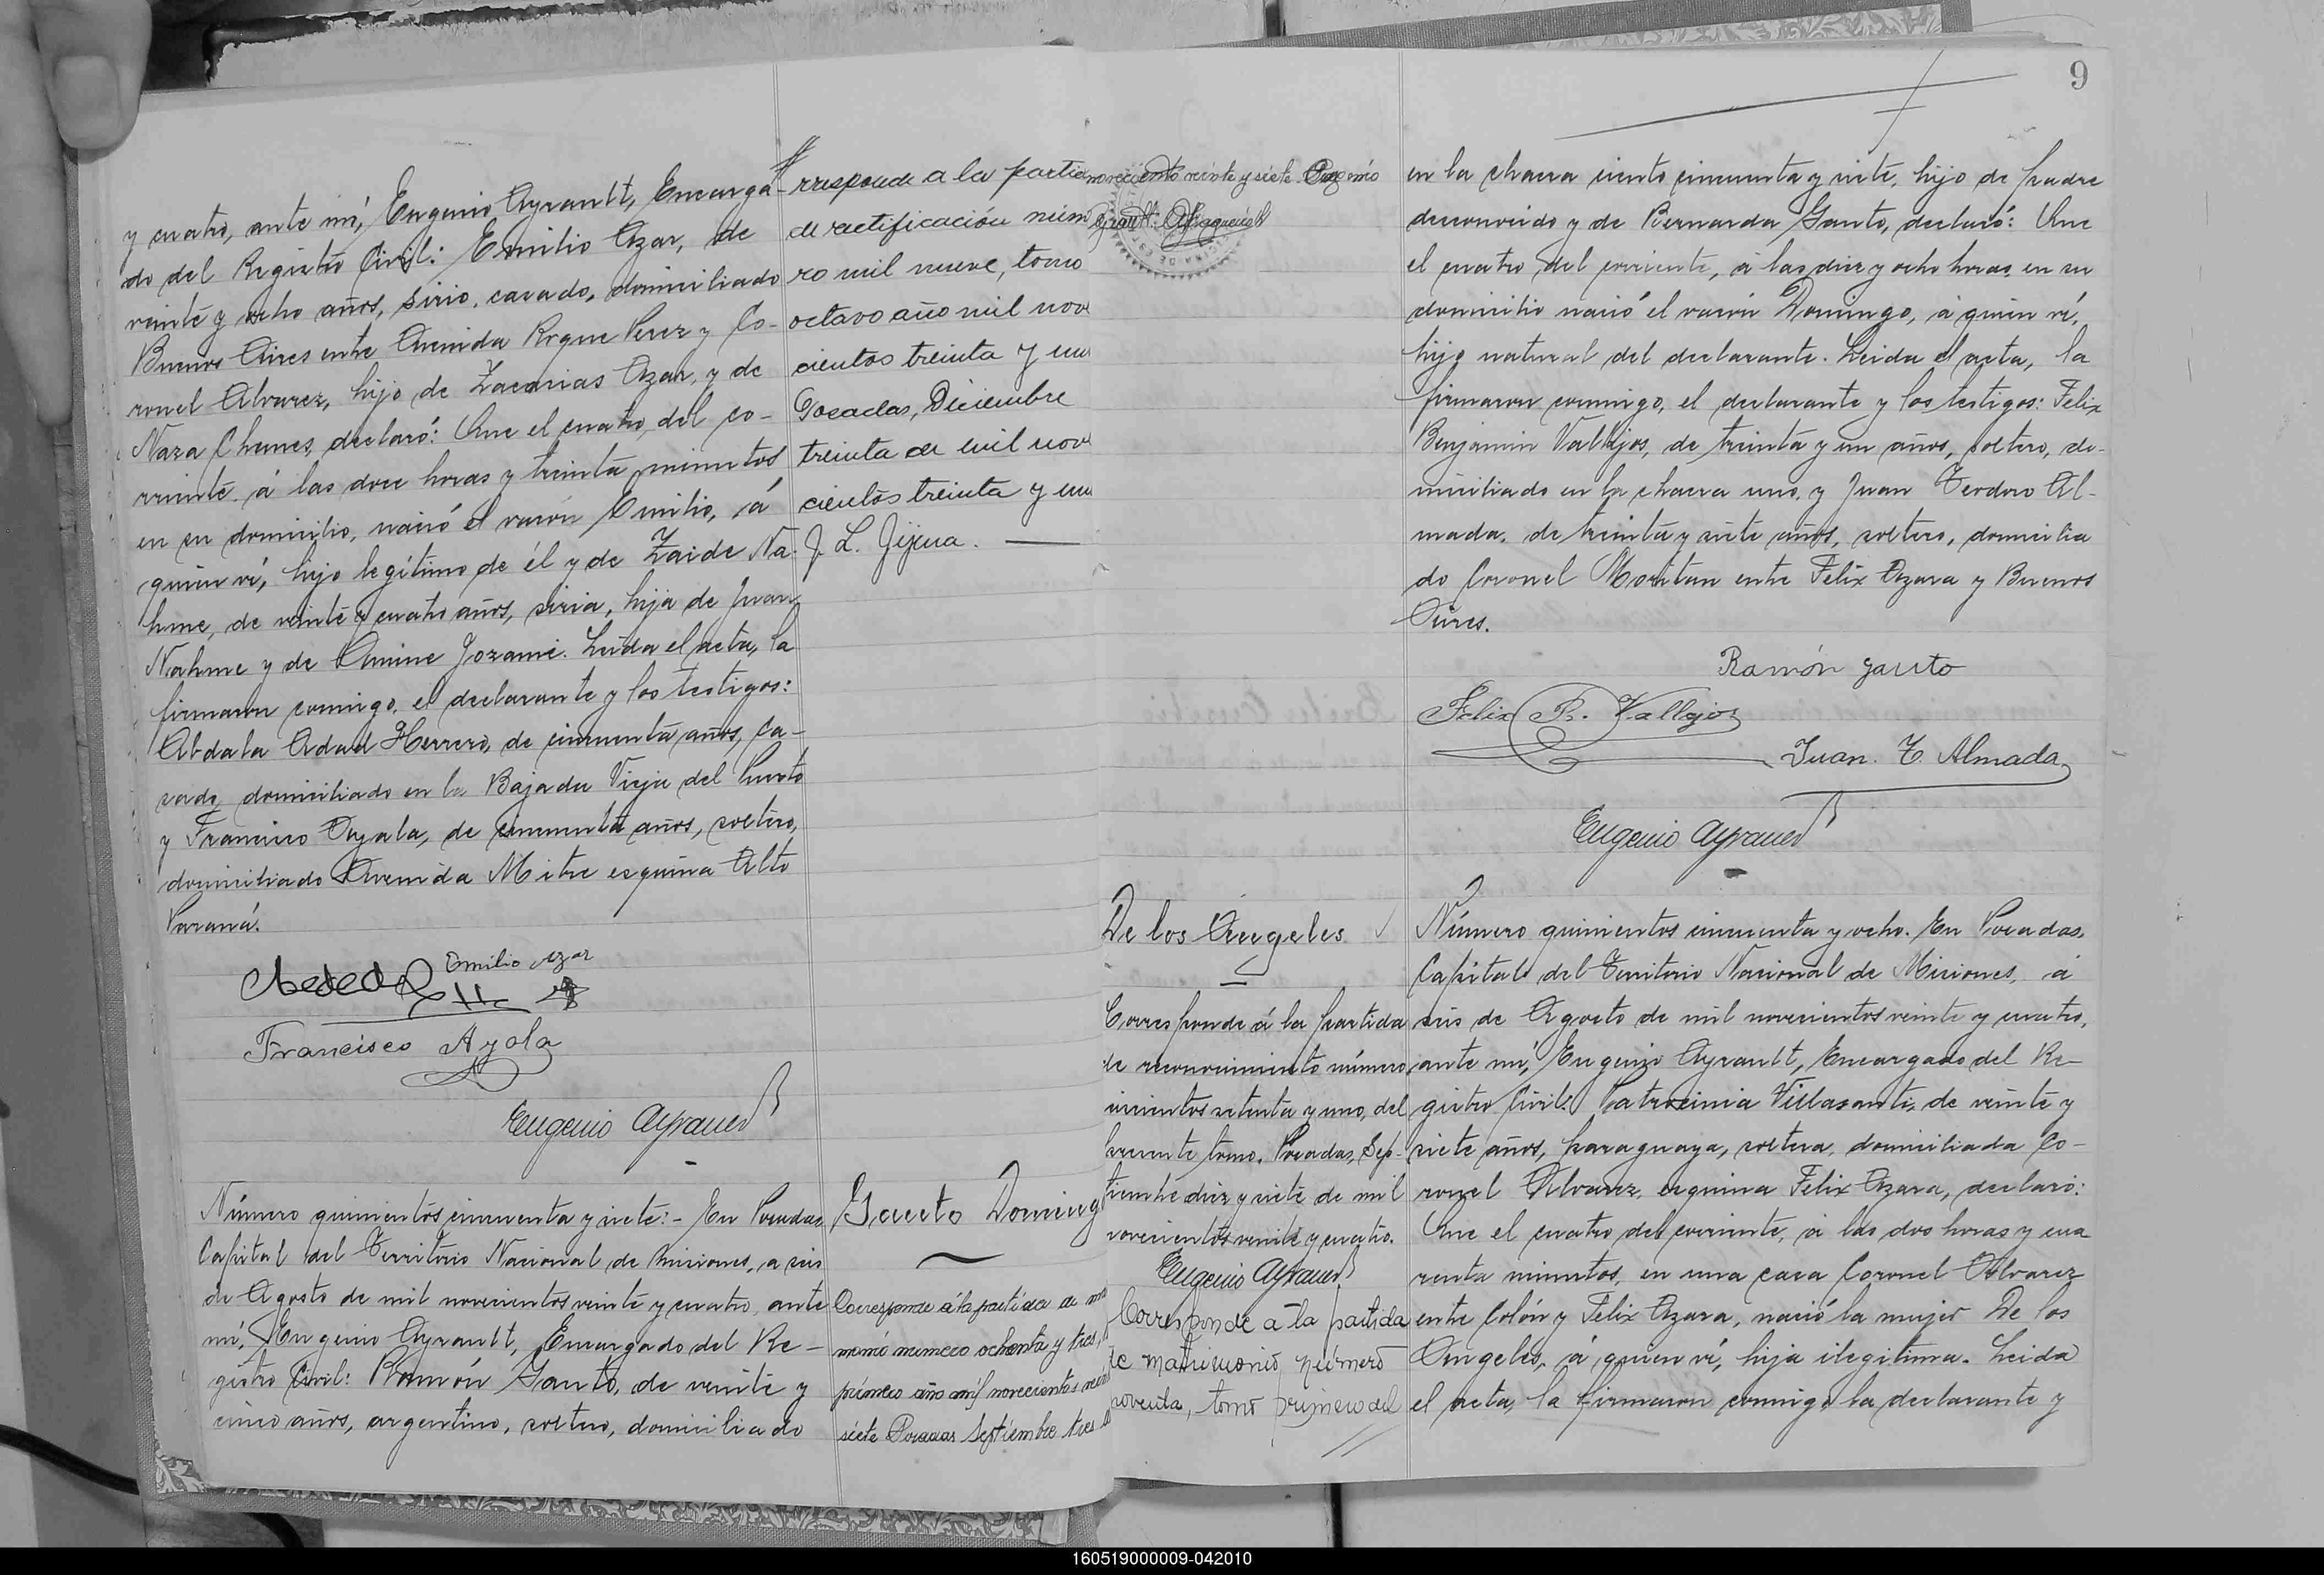 y cuatro, ante mí, Eugenio Ayrault, Encarga-
do del Registro Civil: Emilio Azar, de
veinte y ocho años, sirio, casado, domiciliado
Buenos Aires entre Avenida Roque Perez y Co-
ronel Alvarez, hijo de Zacarias Azar, y de
Naza Chemes, declaró: Que el cuatro del co-
rriente, á las doce horas y treinta minutos
en su domicilio, nació el varón Emilio, á
quien ví, hijo legítimo de él y de Zaide Na-
hme, de veinte y cuatro años, siria, hija de Juan
Nahme y de Amine Jozami. Leida el acta, la
firmaron conmigo, el declarante y los testigos:
Abdala Adad Herrero, de cincuenta años, ca-
sado, domiciliado en la Bajada Vieja del Puerto
y Francisco Ayala, de cincuenta años, soltero,
domiciliado Avenida Mitre esquina Alto
Paraná.
Emilio Azar
Francisco Ayala
Eugenio Ayrault
rresponde a la partid
de rectificación núm
ro mil nueve, tomo
octavo año mil nov
cientos treinta y un
Posadas, Diciembre
treinta de mil nov
cientos treinta y un
J. L.
Número quinientos cincuenta y siete:- En Posadas,
Capital del Territorio Nacional de Misiones, a seis
de Agosto de mil novecientos veinte y cuatro, ante
mí, Eugenio Ayrault, Encargado del Re-
gistro Civil: Ramón Gauto, de veinte y
cinco años, argentino, soltero, domiciliado
Gauto Domingo
Corresponde á la partida de
número ochenta y tres,
primero año mil novecientos
siete Posadas Septiembre tres
novecientos veinte y siete. Eugenio
9
en la chacra ciento cincuenta y siete, hijo de padre
desconocido y de Bernarda Gauto, declaró: Que
el cuatro del corriente, á las diez y ocho horas, en su
domicilio nació el varón Domingo, á quien ví,
hijo natural del declarante. Leida el acta, la
firmaron conmigo, el declarante y los testigos: Felix
Benjamin Vallejos, de treinta y un años, soltero, do-
miciliado en la chacra uno, y Juan Teodoro Al-
mada, de treinta y siete años, soltero, domicilia
do Coronel Moritan entre Felix Azara y Buenos
Aires.
Ramón Gauto
Felix B. Vallejos
Juan. T. Almada
Eugenio Ayrault
De los Angeles
Corresponde á la partida
de reconocimiento número
seiscientos setenta y uno, del
presente tomo. Posadas, Sep-
tiembre diez y siete de mil
novecientos veinte y cuatro.
Eugenio Ayrault
Corresponde a la partida
de matrimonio número
noventa, tomo primero del
Número quinientos cincuenta y ocho. En Posadas,
Capital del Territorio Nacional de Misiones, á
seis de Agosto de mil novecientos veinte y cuatro,
ante mí, Eugenio Ayrault, Encargado del Re-
gistro Civil: Patrocinia Villasanti, de veinte y
siete años, paraguaya, soltera, domiciliada Co-
ronel Alvarez, esquina Felix Azara, declaró:
Que el cuatro del corriente, á las dos horas y cua
renta minutos, en una casa Coronel Alvarez
entre Colón y Felix Azara, nació la mujer De los
Angeles, á quien ví, hija ilegitima. Leida
el acta, la firmaron conmigo la declarante y
160519000009-042010